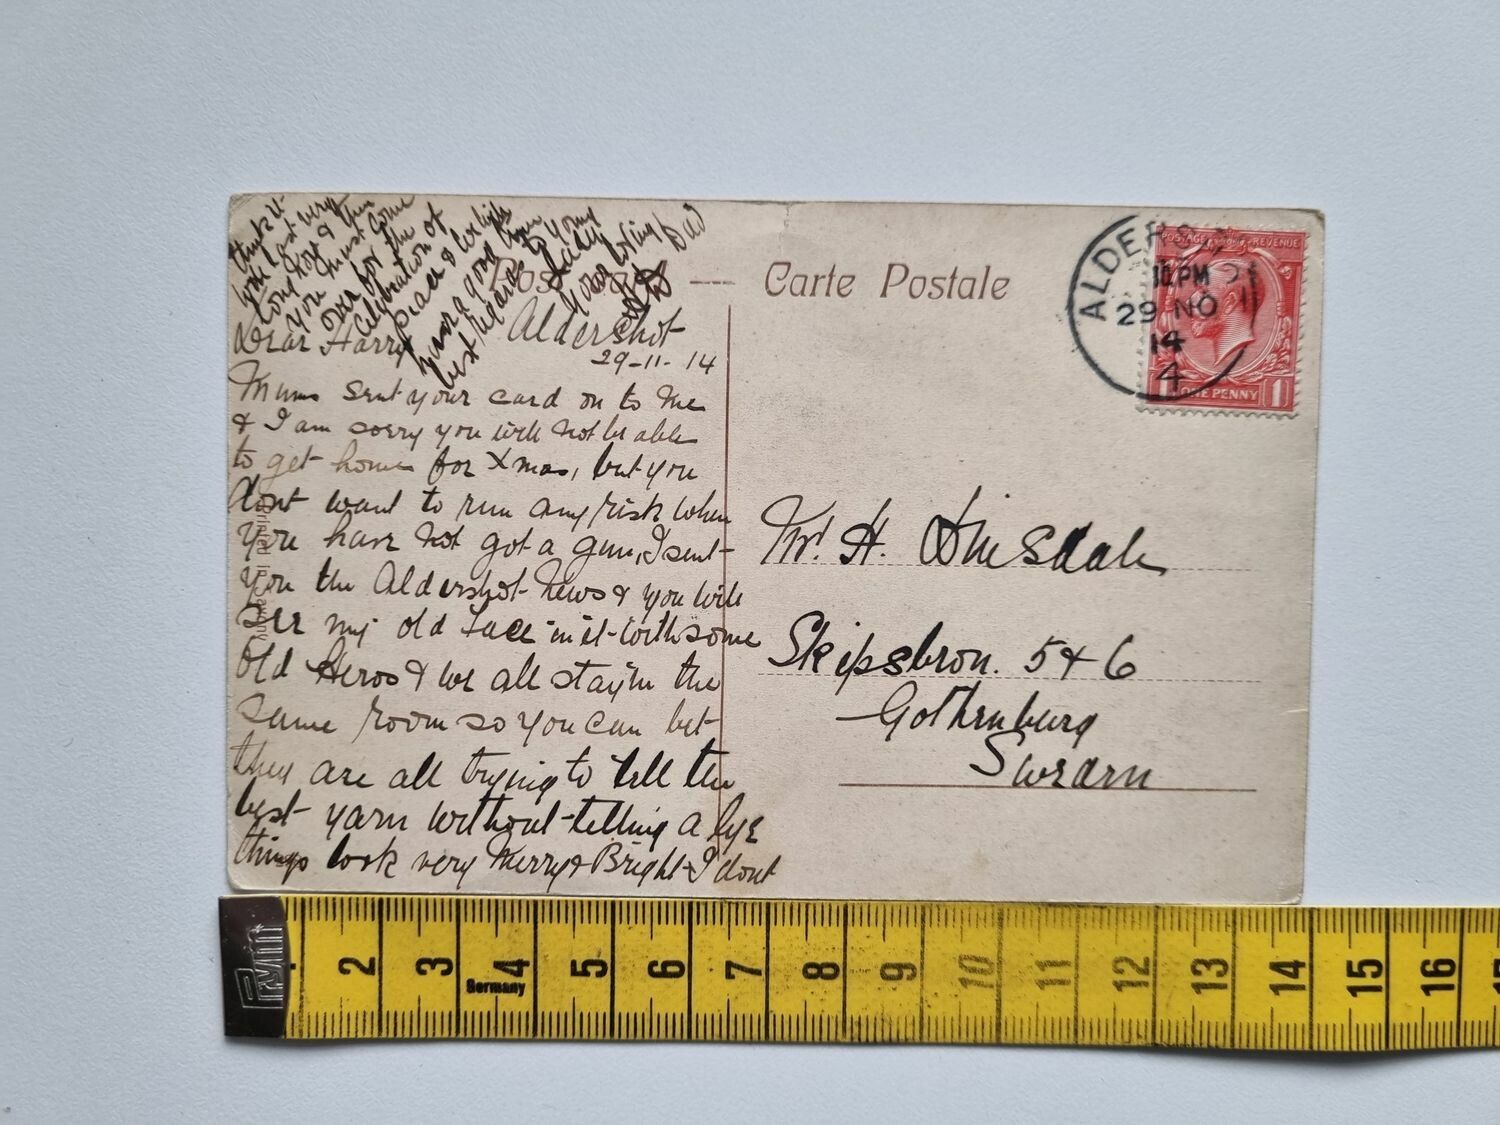 Post Card — Carte Postale
Aldershot
29-11-14
Dear Harry
Mum sent your card on to me
& I am sorry you will not be able
to get home for Xmas, but you
dont want to run any risk when
you have not got a gun, I sent
you the Aldershot News & you will
see my old face in it with some
old Heros & we all stay in the
same room so you can bet
they are all trying to tell the
best yarn without telling a lye
things look very Merry & Bright I dont
think it
will last very
long now & then
you must come
over for the
celebration of
peace &
have a good time
best regards to your
Your loving Dad
Mr. H. Hinsdale
Skipsbron. 5 & 6
Gothenburg
Sweden
ALDERSHOT
10.PM
29 NO
14
4
POSTAGE REVENUE
1 ONE PENNY 1
PWM
2 3 4 5 6 7 8 9 10 11 12 13 14 15 16
Germany